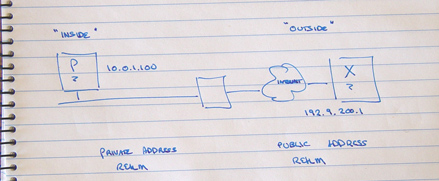 "INSIDE"
"OUTSIDE"
P
?
10.0.1.100
INTERNET
X
?
192.9.200.1
PRIVATE ADDRESS
REALM
PUBLIC ADDRESS
REALM